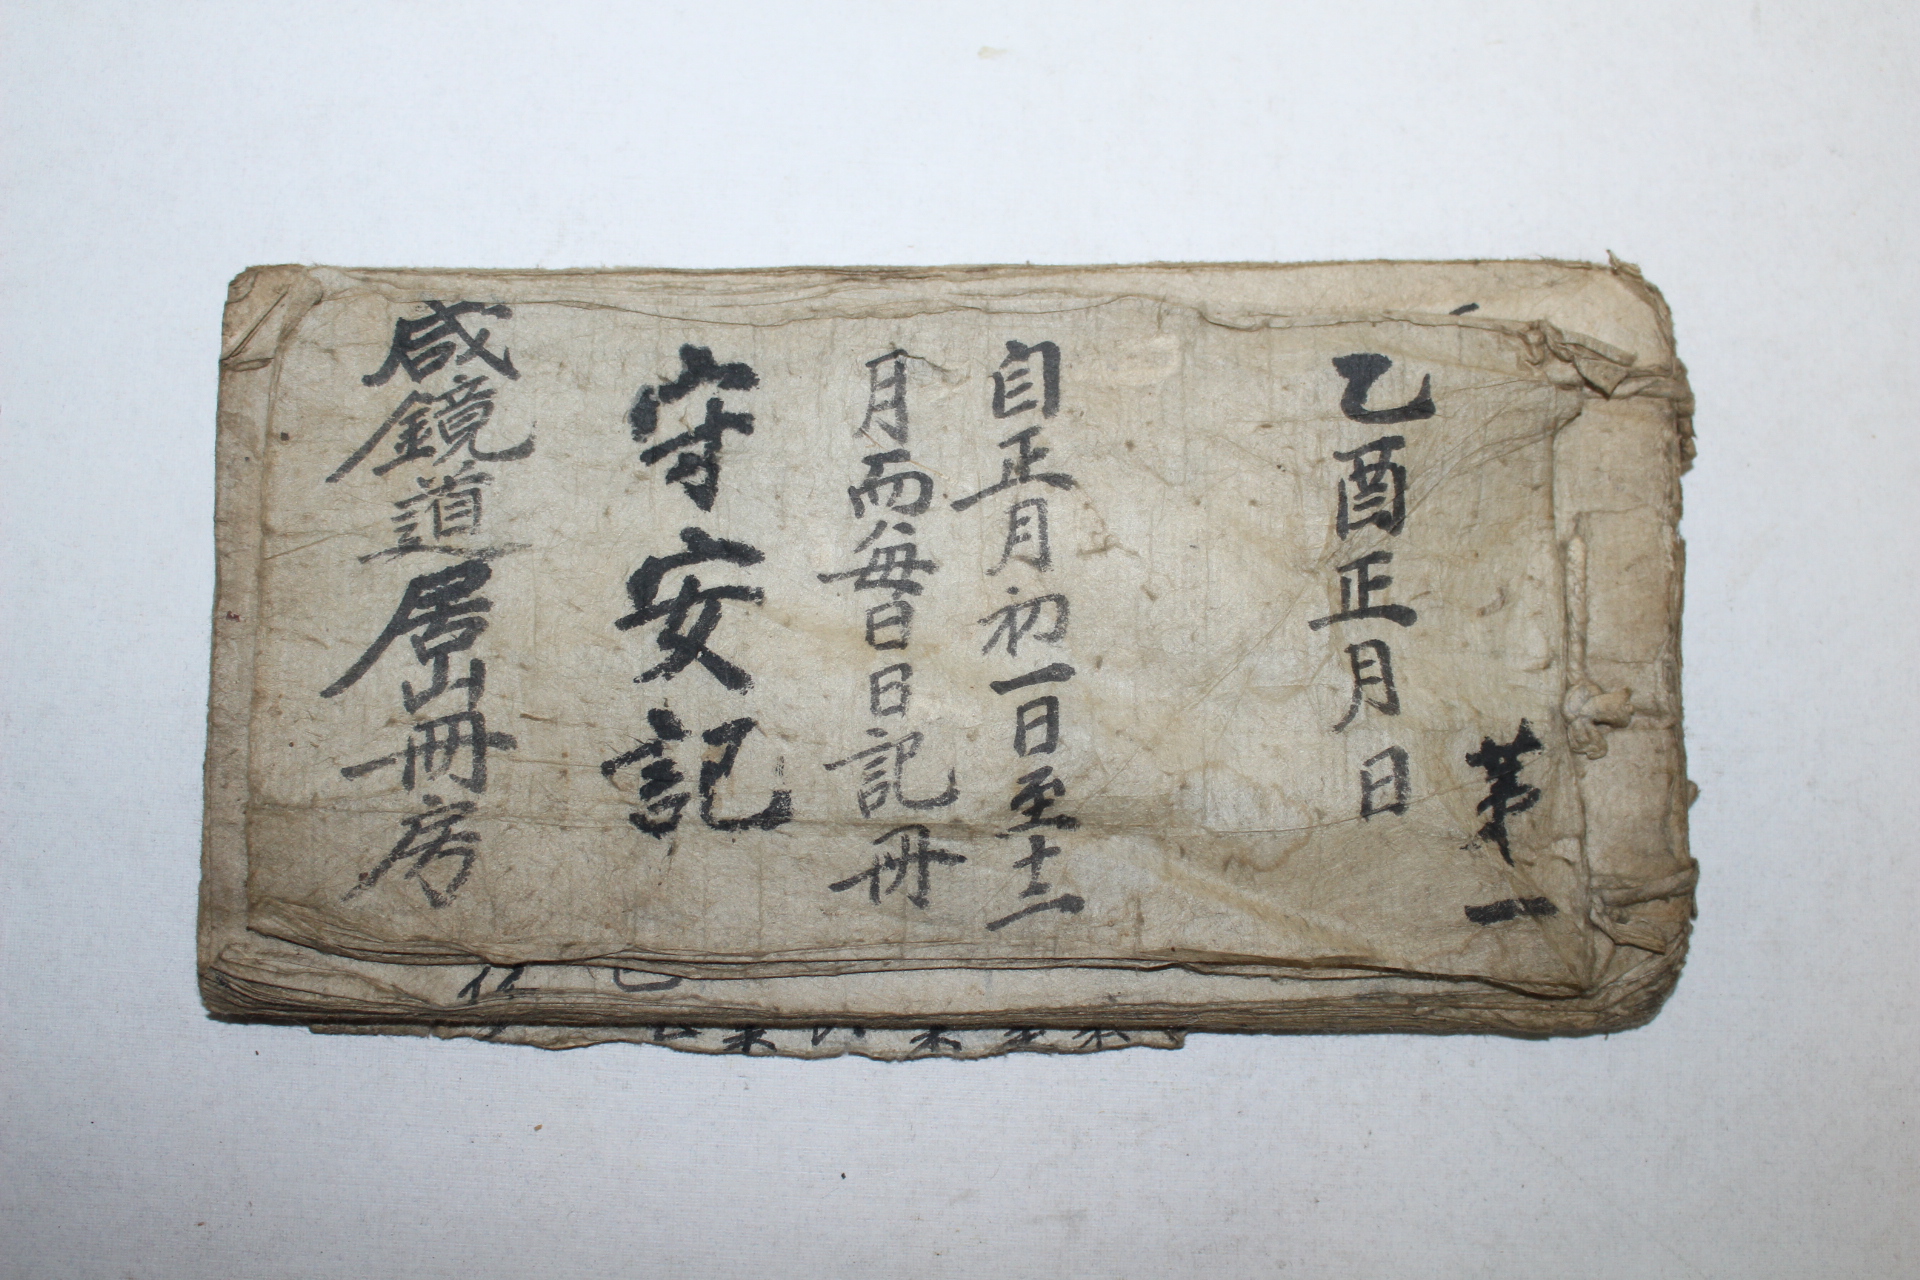 第一
乙酉正月日
自正月初一日至十二
月而每日日記冊
守安記
咸鏡道居山冊房